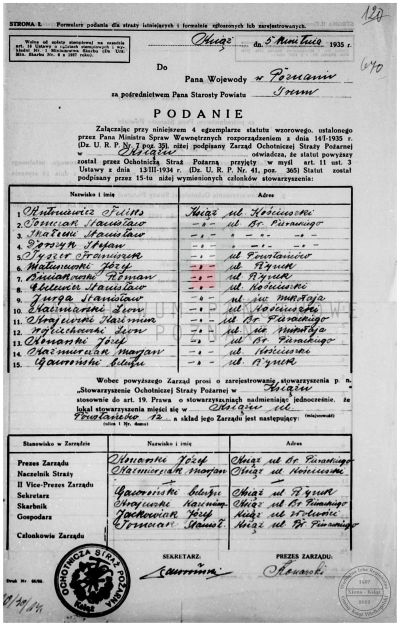 STRONA I. Formularz podania dla straży istniejących i formalnie zgłoszonych lub zarejestrowanych.
120
Wolne od opłaty stemplowej na zasadzie
Książ dn. 5 kwietnia 1935 r.
670
Do
Pana Wojewody w Poznaniu
za pośrednictwem Pana Starosty Powiatu Śrem
PODANIE
Załączając przy niniejszem 4 egzemplarze statutu wzorowego, ustalonego
przez Pana Ministra Spraw Wewnętrznych rozporządzeniem z dnia 14/I-1935 r.
(Dz. U. R. P. Nr. 7 poz. 35), niżej podpisany Zarząd Ochotniczej Straży Pożarnej
w Książu oświadcza, że statut powyższy
został przez Ochotniczą Straż Pożarną przyjęty w myśl art. 11 ust. 3
Ustawy z dnia 13/III-1934 r. (Dz. U. R. P. Nr. 41, poz. 365) Statut został
podpisany przez 15-tu niżej wymienionych członków stowarzyszenia:
Nazwisko i imię Adres
1. Antoniewicz Feliks Książ ul. Kościuszki
2. Tomczak Stanisław -„- ul. Br. Pierackiego
3. Skałecki Stanisław -„- „ -„- -„-
4. Stefan -„- „ -„- -„-
5. Tyszer Franciszek -„- ul. Powstańców
6. Józef -„- ul. Rynek
7. Roman -„- ul. Rynek
8. Stanisław -„- ul. Kościuszki
9. Jurga Stanisław -„- ul. św. Mikołaja
10. Kaczmarski Leon -„- ul. Kościuszki
11. Krajewski Kazimierz -„- ul. Br. Pierackiego
12. Wojciechowski Leon -„- ul. św. Mikołaja
13. Konarski Józef -„- ul. Br. Pierackiego
14. Kaźmierczak Marjan -„- ul. Kościuszki
15. Gawroński -„- ul. Rynek
Wobec powyższego Zarząd prosi o zarejestrowanie stowarzyszenia p. n.
„Stowarzyszenie Ochotniczej Straży Pożarnej w Książu
stosownie do art. 19. Prawa o stowarzyszeniach nadmieniając jednocześnie, że
lokal stowarzyszenia mieści się w Książu ul.
(miejscowość)
Powstańców 12 a skład jego Zarządu jest następujący:
(ulica i Nr. domu)
Stanowisko w Zarządzie Nazwisko i imię Adres
Prezes Zarządu Konarski Józef Książ ul. Br. Pierackiego
Naczelnik Straży Kaźmierczak Marjan Książ ul. Kościuszki
II Vice-Prezes Zarządu
Sekretarz Gawroński Książ ul. Rynek
Skarbnik Krajewski Kazimierz Książ ul. Br. Pierackiego
Gospodarz Jackowiak Józef Książ ul. Wolności
Tomczak Stanisł. Książ ul. Br. Pierackiego
Członkowie Zarządu
SEKRETARZ: PREZES ZARZĄDU:
Gawroński Konarski
OCHOTNICZA STRAŻ POŻARNA
Książ